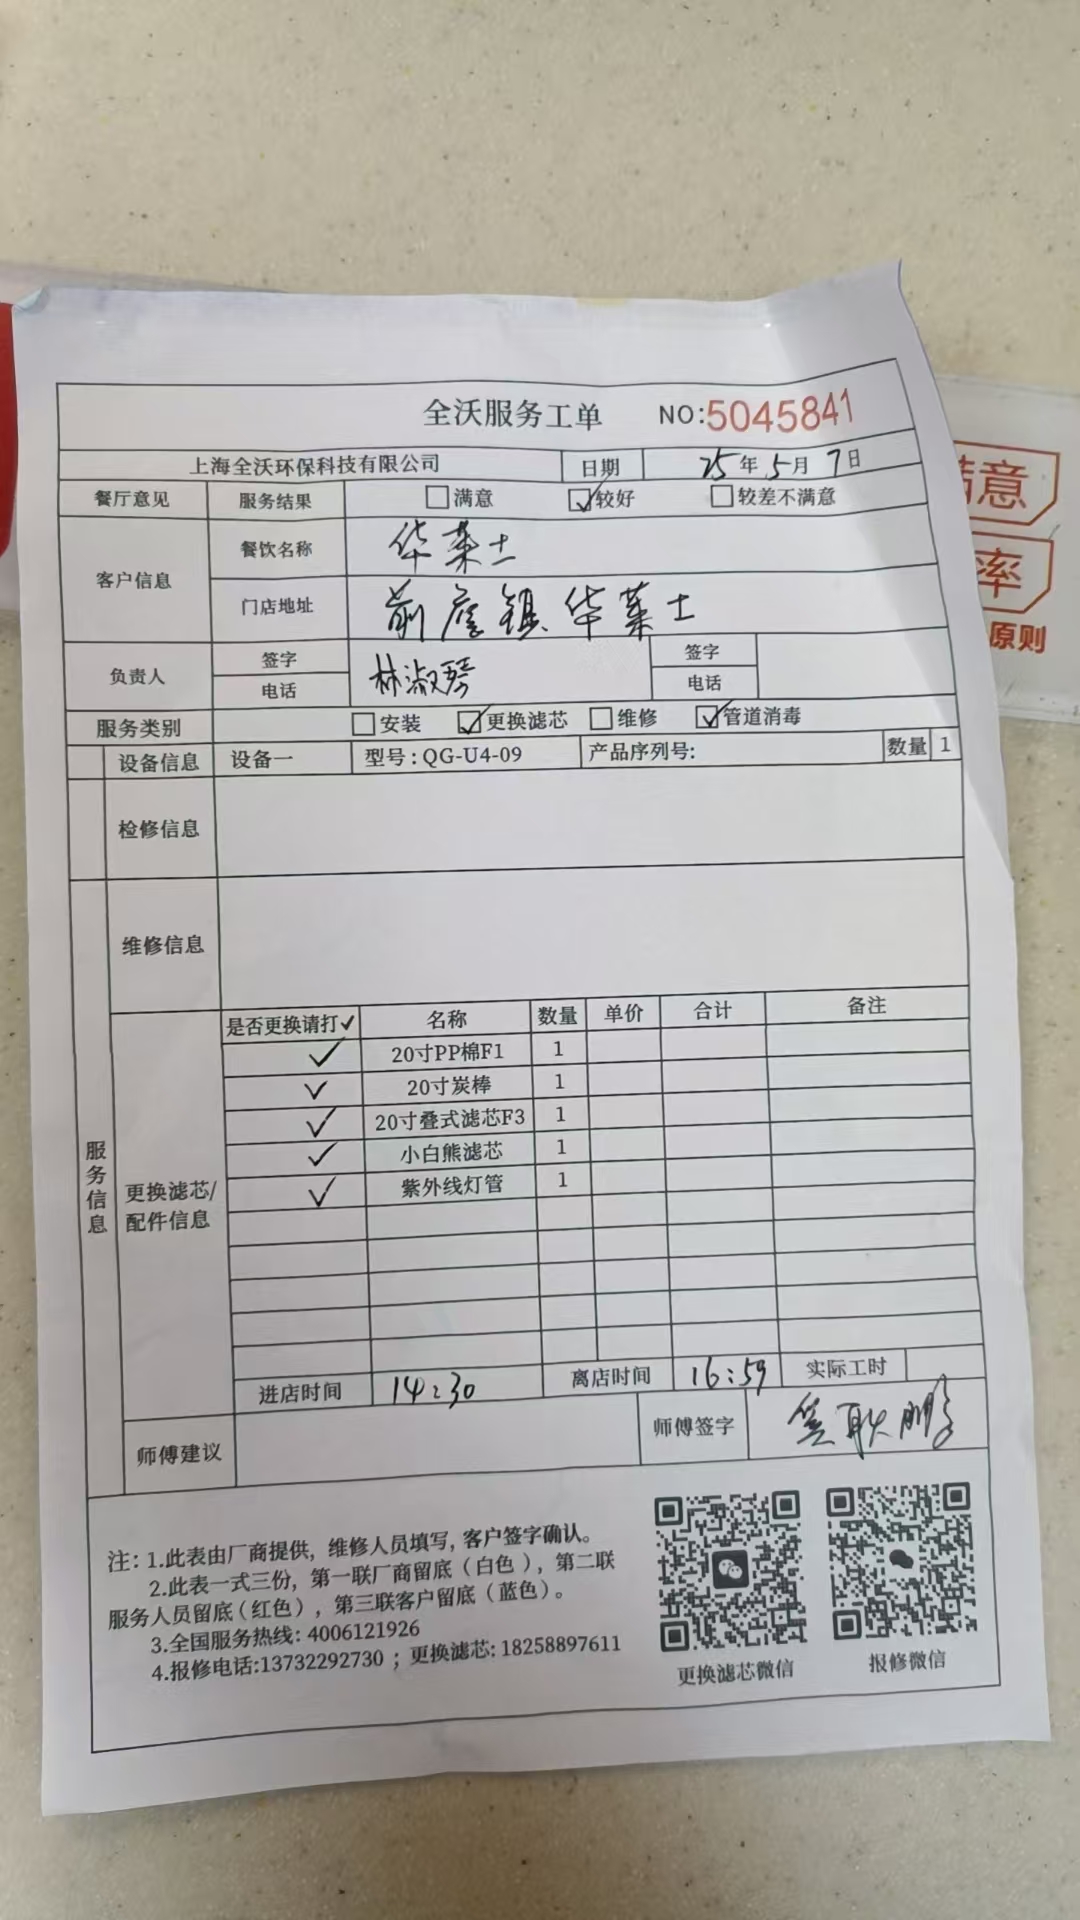 全沃服务工单 NO:5045841
上海全沃环保科技有限公司 日期 25年5月7日
餐厅意见 服务结果 □满意 ☑较好 □较差不满意
客户信息 餐饮名称 华莱士
门店地址 前詹镇华莱士
负责人 签字 林淑琴 签字
电话 电话
服务类别 □安装 ☑更换滤芯 □维修 ☑管道消毒
设备信息 设备一 型号:QG-U4-09 产品序列号: 数量 1
检修信息
维修信息
服务信息
更换滤芯/配件信息
是否更换请打✓ 名称 数量 单价 合计 备注
✓ 20寸PP棉F1 1
✓ 20寸炭棒 1
✓ 20寸叠式滤芯F3 1
✓ 小白熊滤芯 1
✓ 紫外线灯管 1
进店时间 14:30 离店时间 16:59 实际工时
师傅建议 师傅签字
注: 1.此表由厂商提供, 维修人员填写, 客户签字确认。
2.此表一式三份, 第一联厂商留底(白色), 第二联
服务人员留底(红色), 第三联客户留底(蓝色)。
3.全国服务热线: 4006121926
4.报修电话:13732292730 ; 更换滤芯: 18258897611
更换滤芯微信 报修微信
满意
率
原则